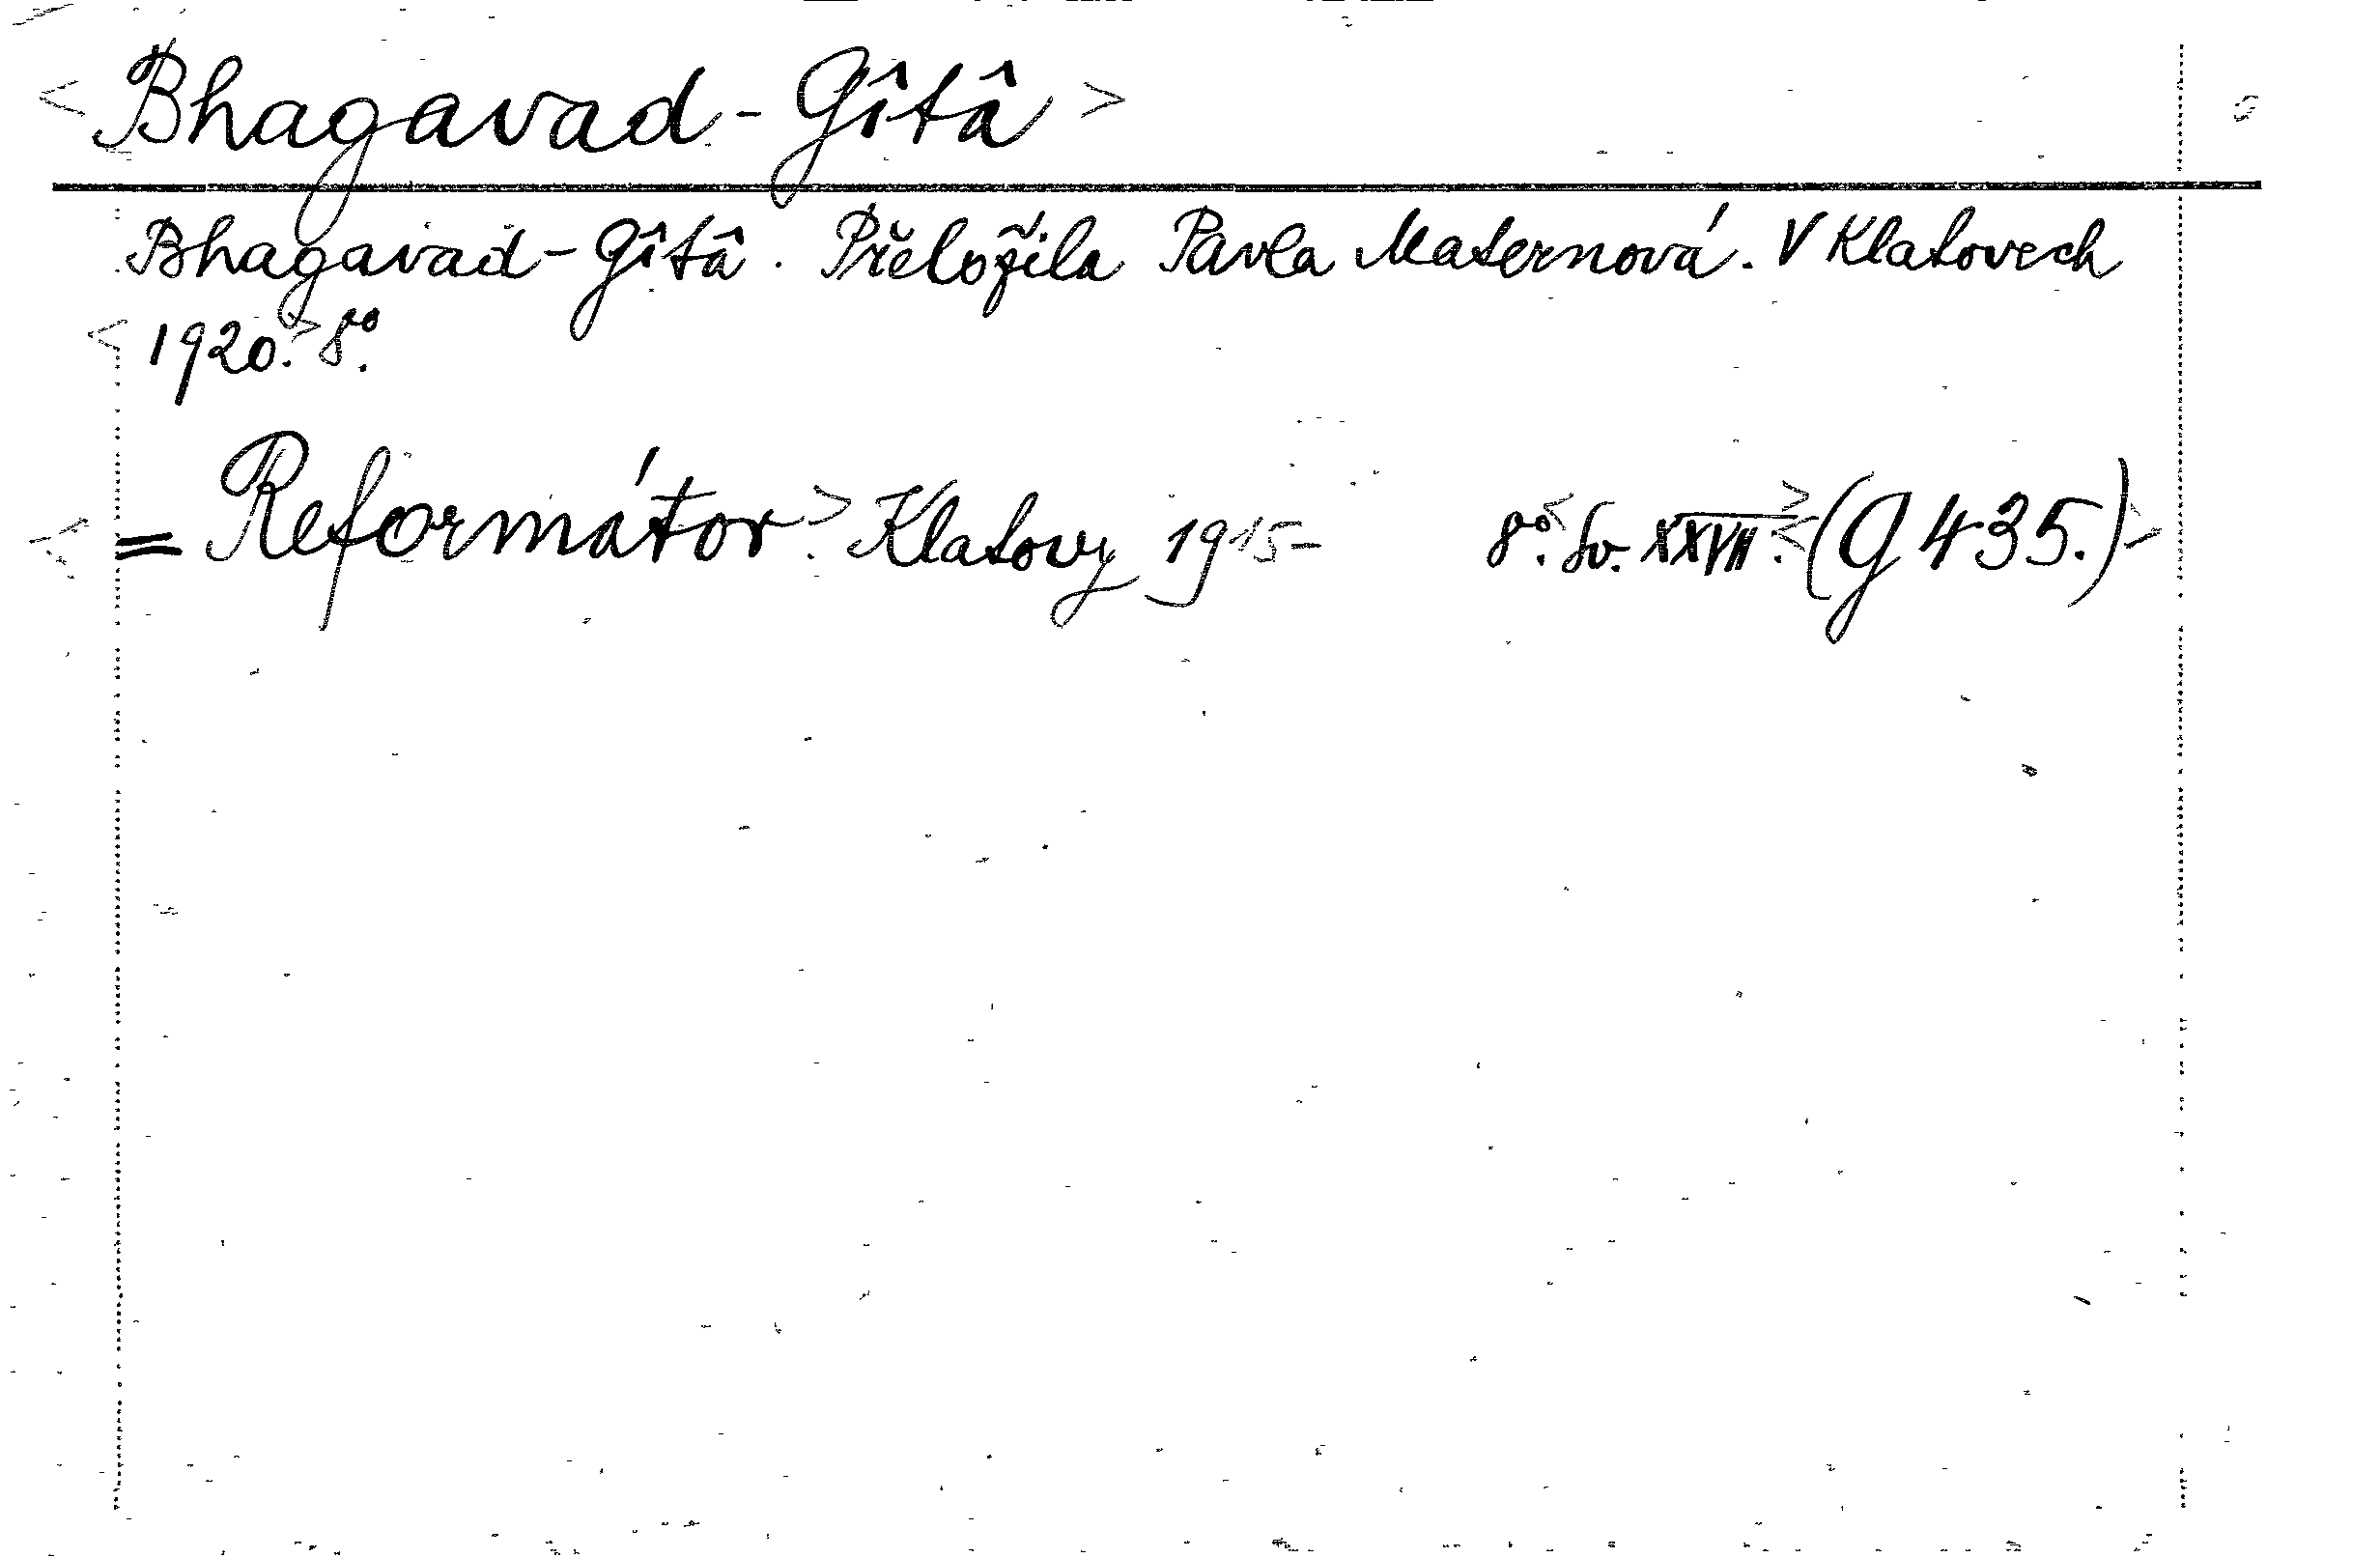 <Bhagavad-Gîtâ>
Bhagavad-Gîtâ. Přeložila Pavla Maternová. V Klatovech
<1920.> 8º.
<= Reformátor.> Klatovy 1915- 8º. <Sv. XXVII.> <(G 435.)>